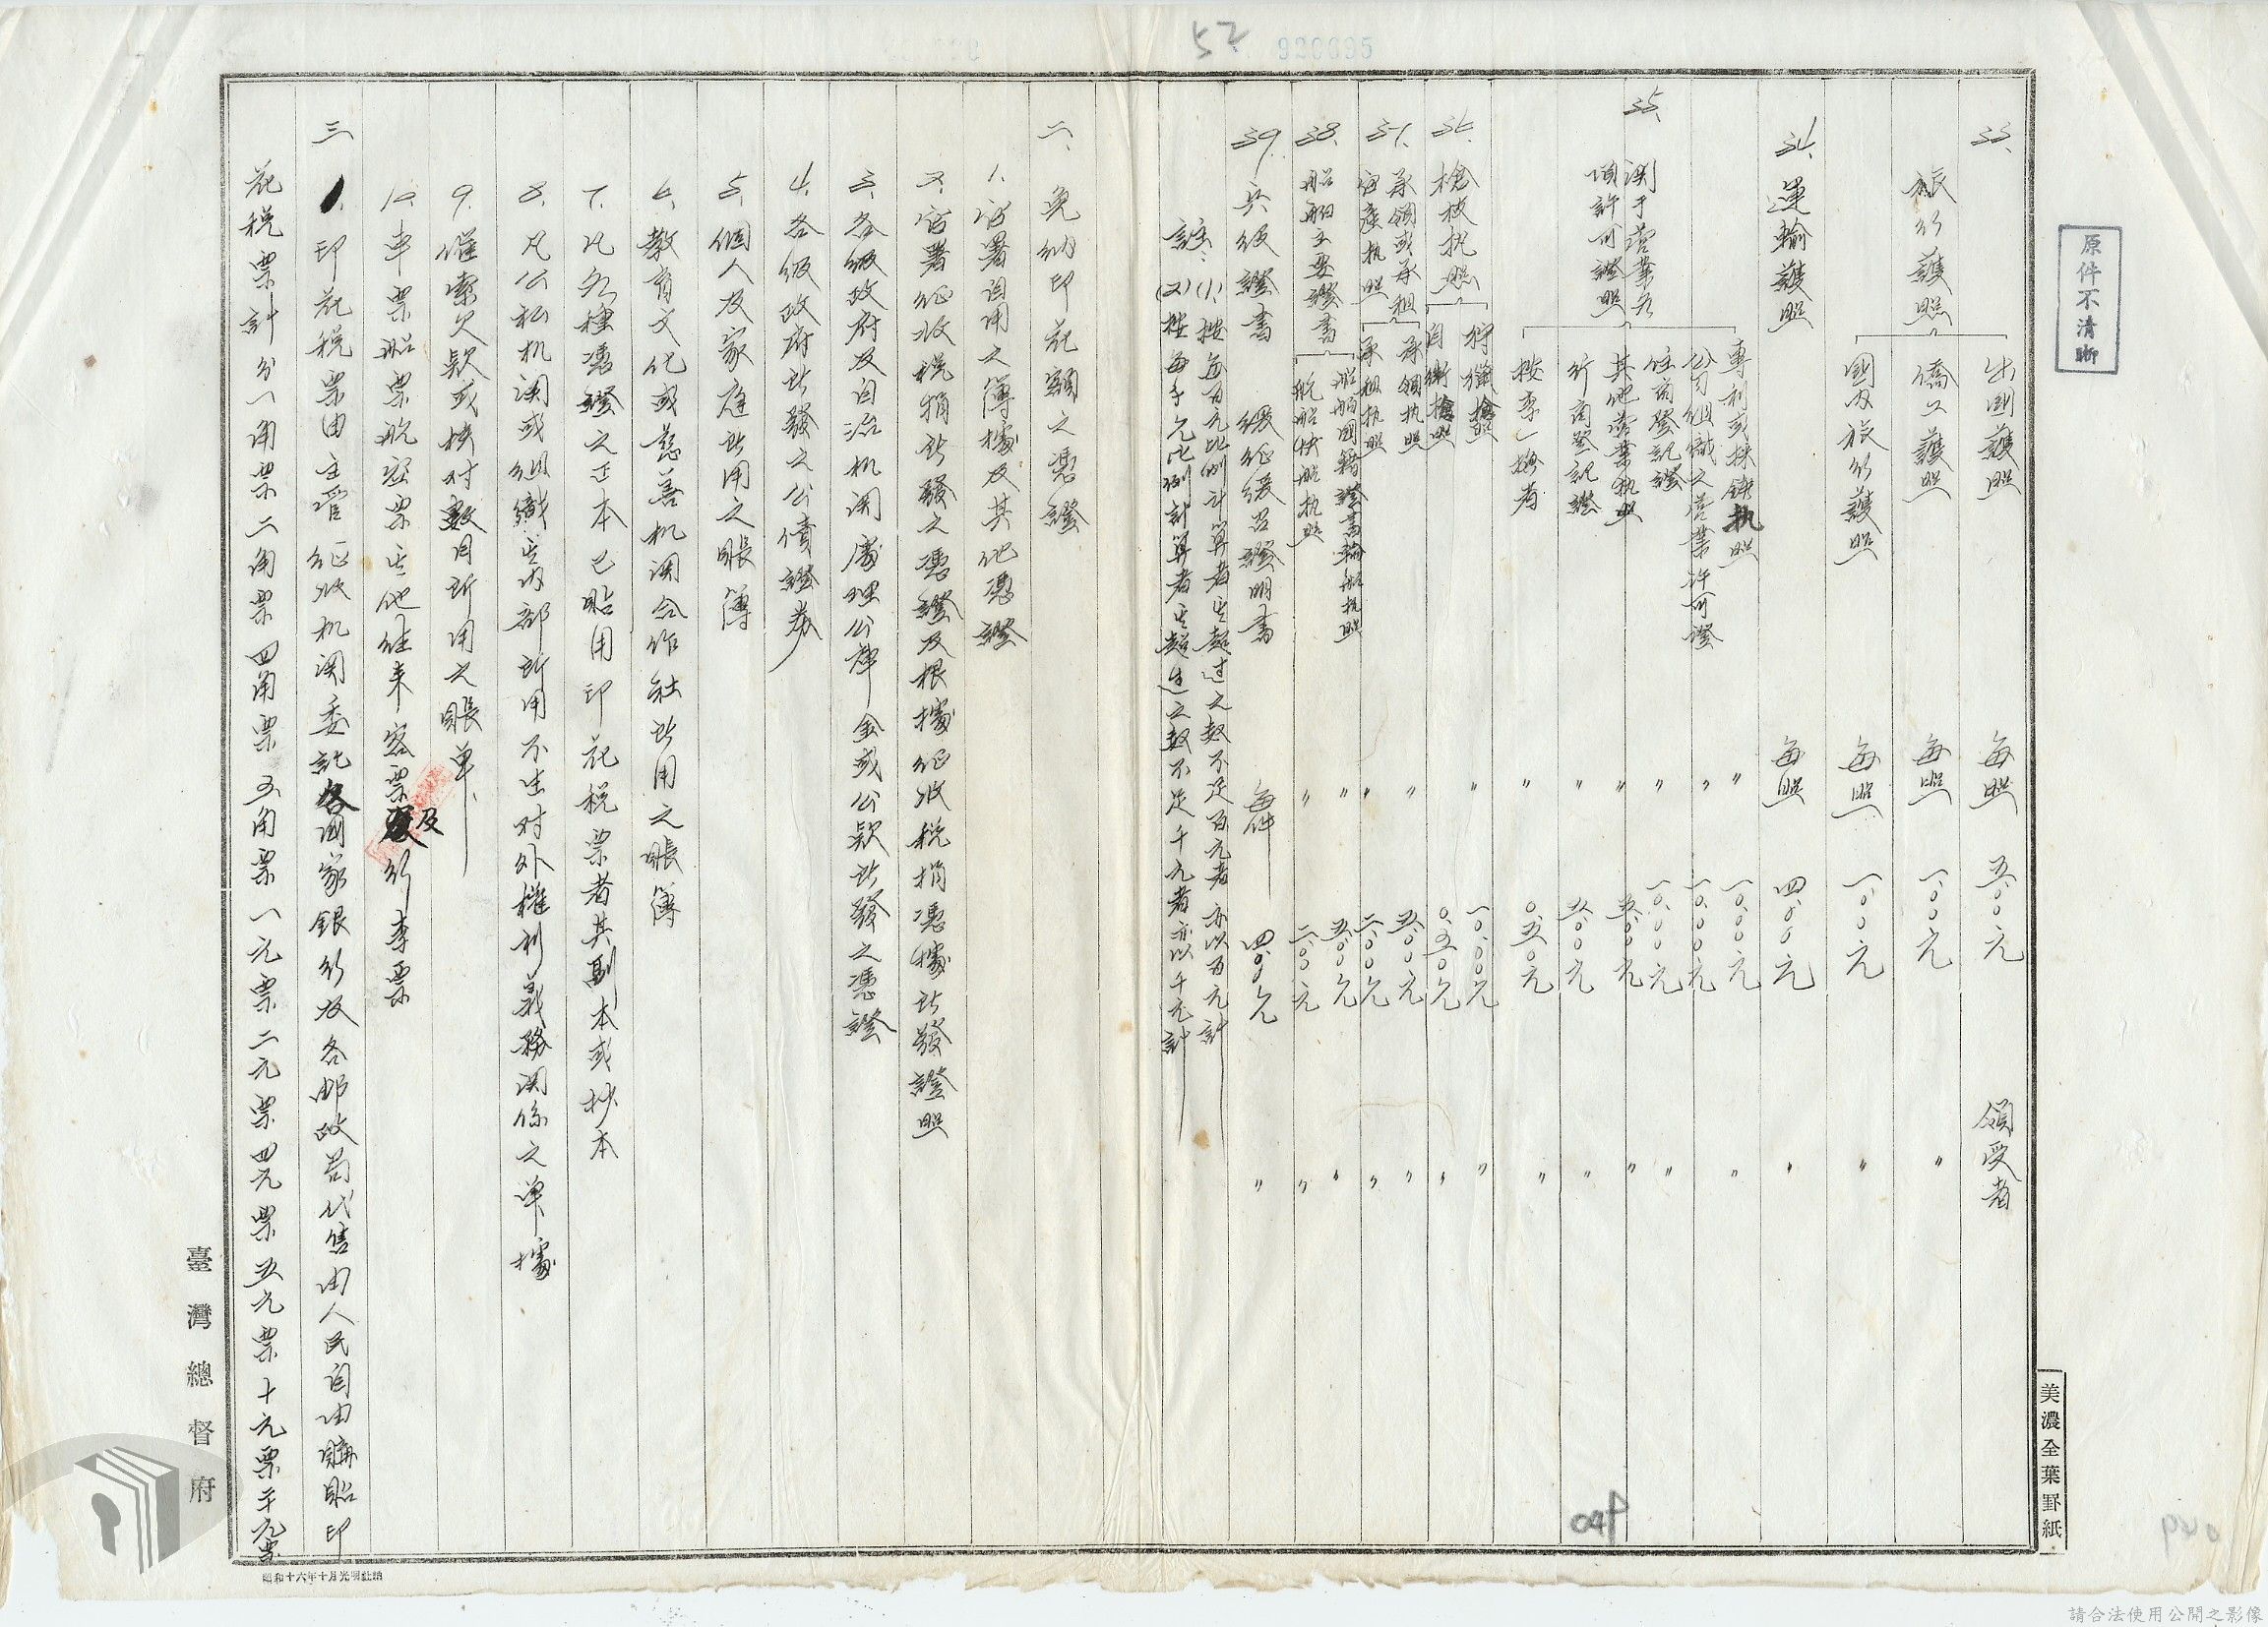 52
920095
原件不清晰
33. 旅行護照
出国護照 每照 五.00元 領受者
僑工護照 每照 一.00元 〃
國内旅行護照 每照 一.00元 〃
34. 運輸護照 每照 四.00元 〃
35. 関于营業各項許可證照
專利或採鉄执照 〃 一0.00元 〃
公司組織之营業许可證 〃 一0.00元
住商登記證 〃 一0.00元 〃
其他营業执照 〃 五.00元 〃
行商登記證 〃 五.00元 〃
按季一換者 〃 0.五0元 〃
36. 槍枝执照
狩獵槍照 〃 一0.00元 〃
自衛槍照 0.五0元 〃
37. 承領或承租官産执照
承領执照 〃 五.00元 〃
承租执照 〃 二.00元 〃
38. 船舶主要證書
船舶國籍證書輪船执照 〃 五.00元 〃
航船快船执照 〃 二.00元 〃
39. 兵役證書 緩征緩召證明書 每件 四.00元 〃
註：(1). 按每百元比例計算者其超过之数不足百元者亦以百元計
(2) 按每千元比例計算者其超過之数不足千元者亦以千元計
二. 免纳印花稅之憑證
1. 官署自用之簿據及其他憑證
2. 官署征收稅捐所發之憑證及根據征收稅捐憑據所發證照
3. 各級政府及自治机関處理公庫金或公欵所發之憑證
4. 各級政府所發之公債證券
5. 個人及家庭所用之賬簿
6. 教育文化或慈善机関合作社所用之賬簿
7. 凡各種憑證之正本已貼用印花税票者其副本或抄本
8. 凡公私机関或組織其内部所用不生对外權利義務関係之单據
9. 催索欠欵或核对數目所用之賬单
10. 車票船票航空票其他往来客票及行李票
三 1. 印花税票由主管征收机関委託各國家銀行及各邮政局代售由人民自由購貼印
花税票計分一角票二角票四角票五角票一元票二元票四元票五元票十元票二十元票
臺灣總督府
美濃全葉罫紙
昭和十六年十月光明社納
049
請合法使用公開之影像